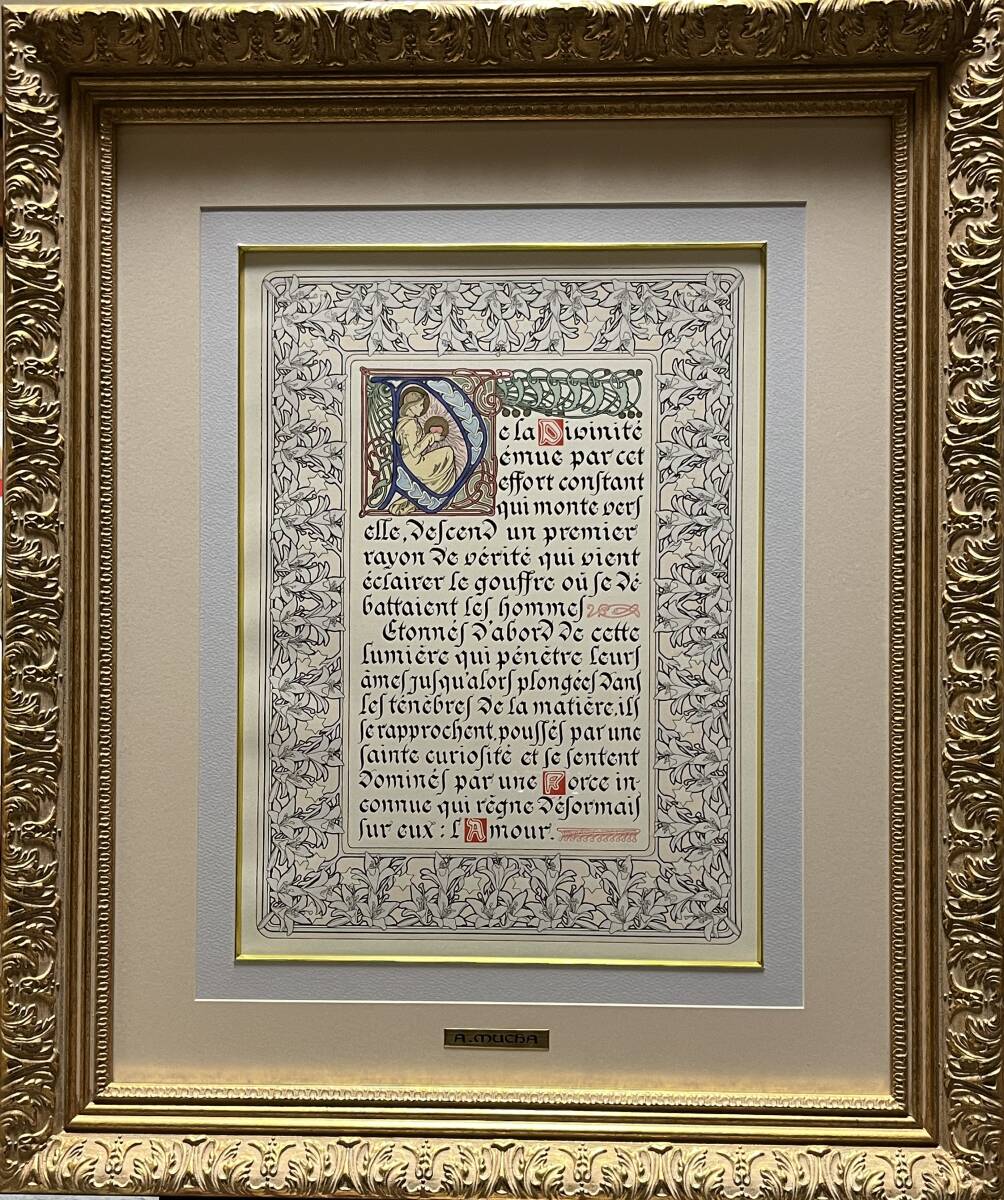 De la Divinité
émue par cet
effort conſtant
qui monte verſ
elle, deſcend un premier
rayon de vérité qui vient
éclairer le gouffre où ſe dé-
battaient leſ hommeſ
Etonnéſ d'abord de cette
lumière qui pénètre leurſ
âmeſ juſqu'alorſ plongéeſ danſ
leſ ténèbreſ de la matière, ilſ
ſe rapprochent, pouſſéſ par une
ſainte curioſité et ſe ſentent
dominéſ par une Force in-
connue qui règne déſormaiſ
ſur eux : l'Amour.
A. MUCHA